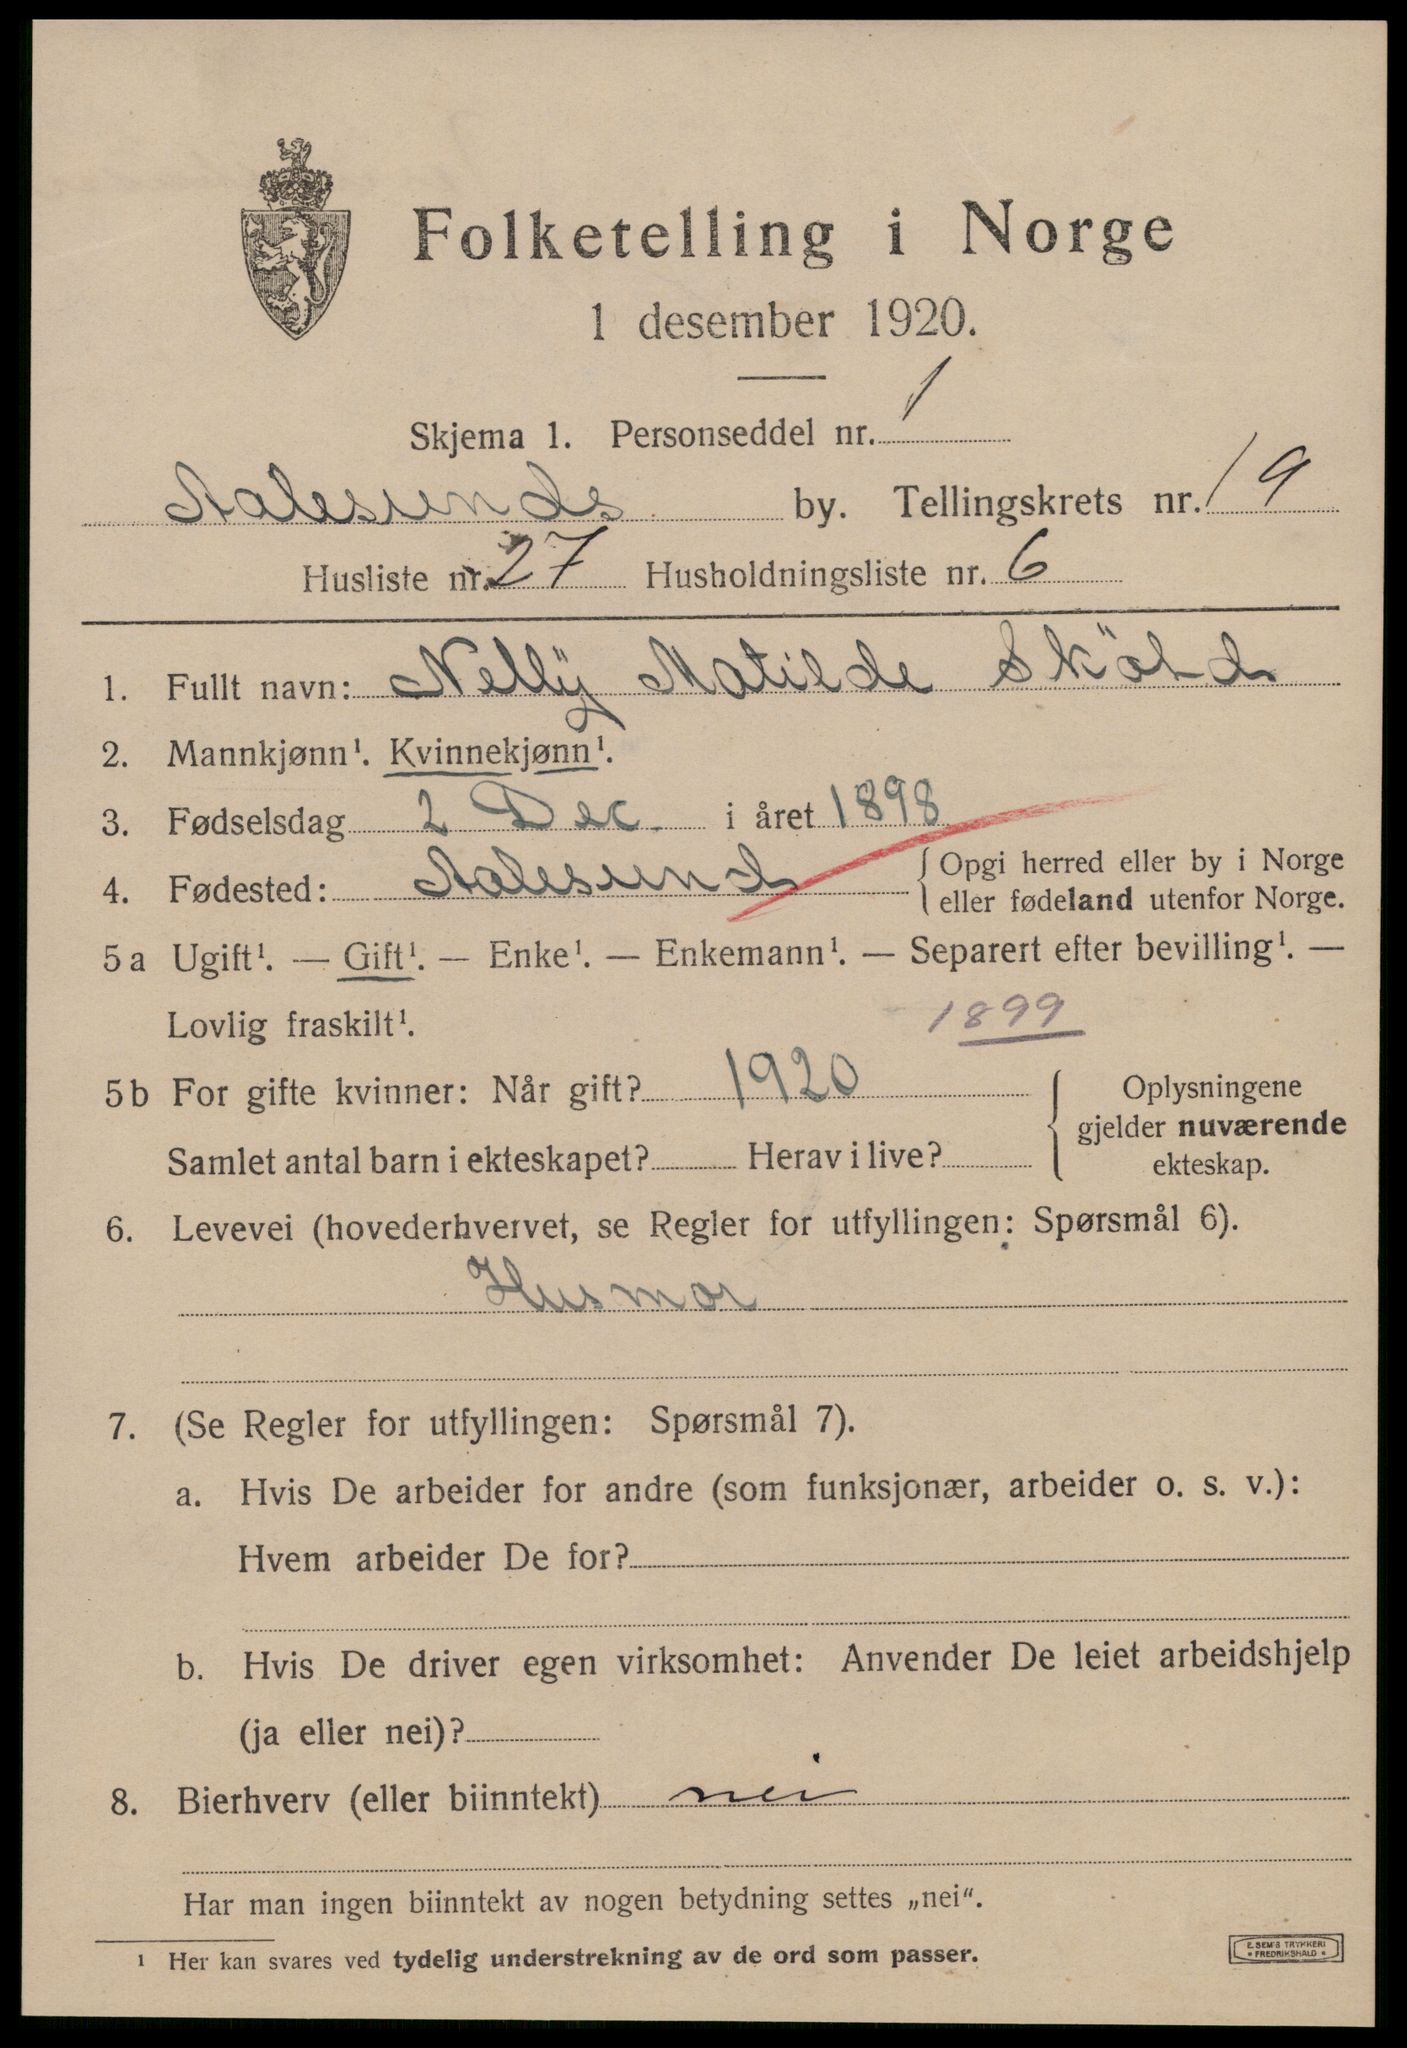 Folketelling i Norge
1 desember 1920.
Skjema 1. Personseddel nr. 1
Aalesunds by. Tellingskrets nr. 19
Husliste nr. 27 Husholdningsliste nr. 6
1. Fullt navn: Nellÿ Matilde Sköld
2. Mannkjønn¹. Kvinnekjønn¹.
3. Fødselsdag 2 Dec. i året 1898
4. Fødested: Aalesund { Opgi herred eller by i Norge
eller fødeland utenfor Norge.
5a Ugift¹. — Gift¹. — Enke¹. — Enkemann¹. — Separert efter bevilling¹. —
Lovlig fraskilt¹. 1899
5b For gifte kvinner: Når gift? 1920
Samlet antal barn i ekteskapet? Herav i live?
{ Oplysningene
gjelder nuværende
ekteskap.
6. Levevei (hovederhvervet, se Regler for utfyllingen: Spørsmål 6).
Husmor
7. (Se Regler for utfyllingen: Spørsmål 7).
a. Hvis De arbeider for andre (som funksjonær, arbeider o. s. v.):
Hvem arbeider De for?
b. Hvis De driver egen virksomhet: Anvender De leiet arbeidshjelp
(ja eller nei)?
8. Bierhverv (eller biinntekt) nei
Har man ingen biinntekt av nogen betydning settes „nei“.
¹ Her kan svares ved tydelig understrekning av de ord som passer.
E. SEM'S TRYKKERI
• FREDRIKSHALD •